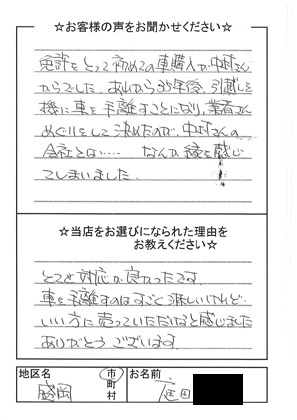 ☆お客様の声をお聞かせください☆
免許をとって初めての車購入が中村さん
からでした。あれから35年後、引越しを
機に車を手離すことになり、業者さん
めぐりをして決めたのが、中村さんの
会社とは…… なんか縁を感じ
てしまいました。
☆当店をお選びになられた理由を
お教えください☆
とても対応が良かったです。
車を手離すのはすごく淋しいけれど、
いい方に売っていただけると感じました
ありがとうございます。
地区名
盛岡
市
町
村
お名前